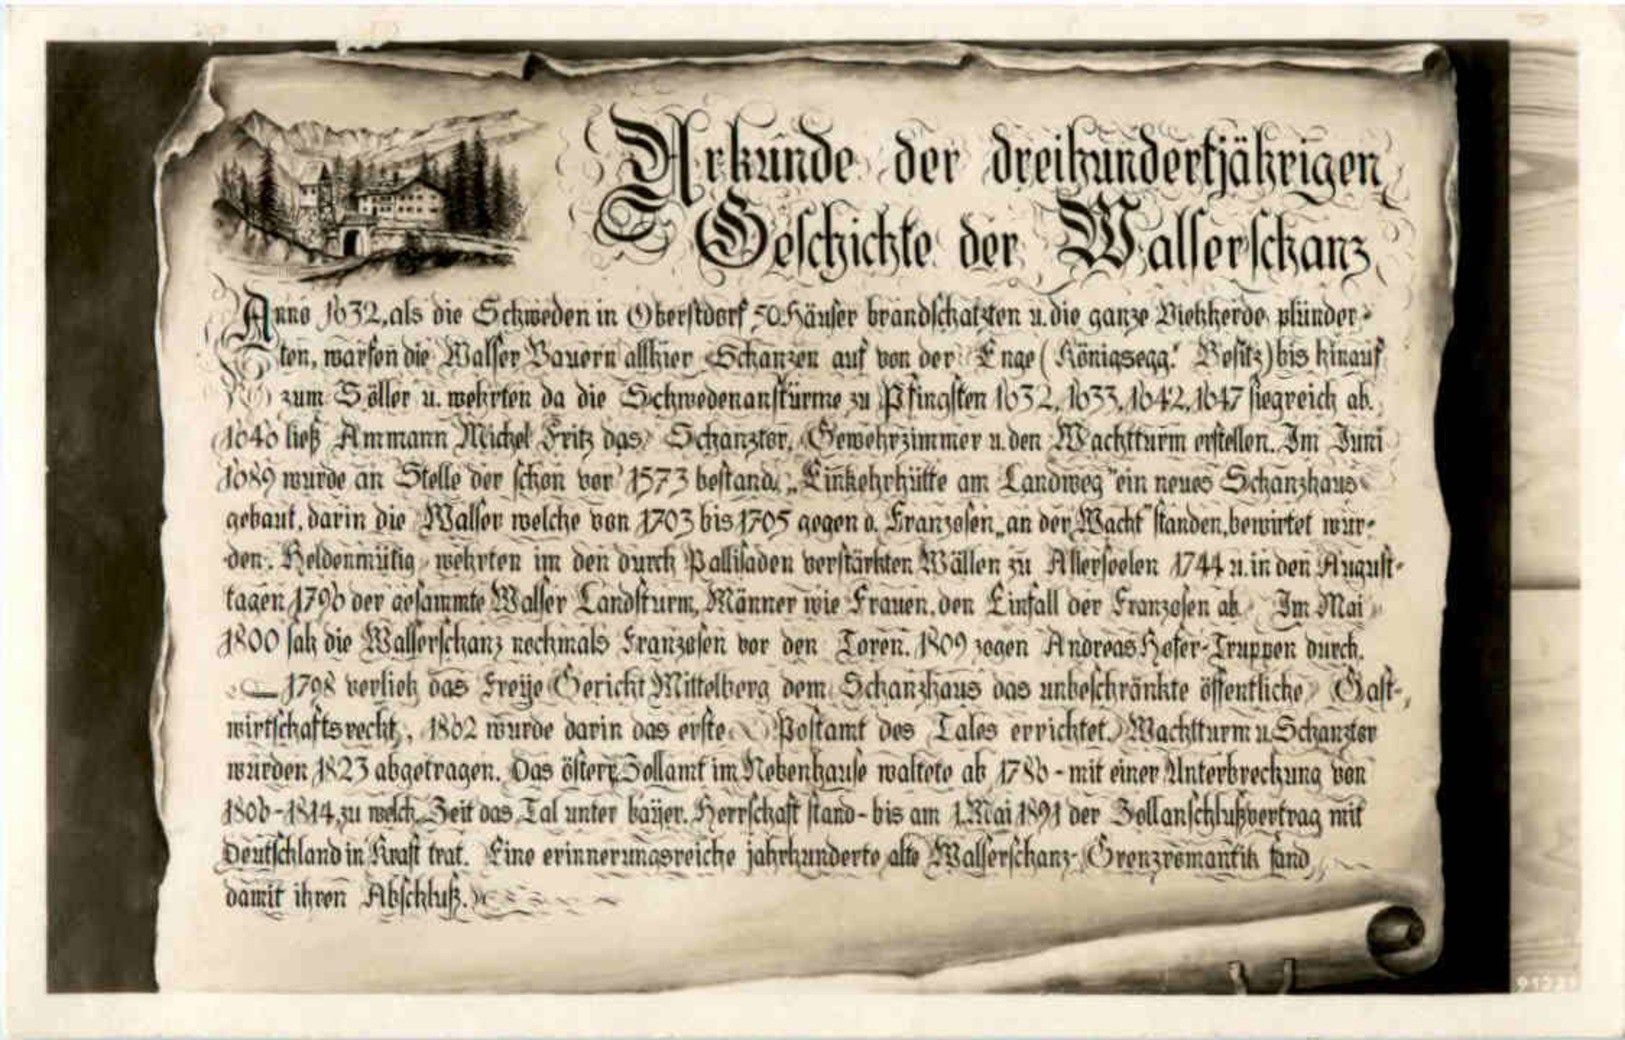 Urkunde der dreihundertjährigen
Geschichte der Walserschanz
Anno 1632, als die Schweden in Oberstdorf 50 Häuser brandschatzten u. die ganze Viehherde plünder-
ten, warfen die Walser Bauern allhier Schanzen auf von der Enge (Königsegg. Besitz) bis hinauf
zum Söller u. wehrten da die Schwedenanstürme zu Pfingsten 1632, 1633, 1642, 1647 siegreich ab.
ließ Ammann Michel Fritz das Schanztor, Gewehrzimmer u. den Wachtturm erstellen. Im Juni
1689 wurde an Stelle der schon vor 1573 bestand. „Einkehrhütte am Landweg" ein neues Schanzhaus
gebaut, darin die Walser welche von 1703 bis 1705 gegen d. Franzosen „an der Wacht" standen, bewirtet wur-
den. Heldenmütig wehrten im den durch Pallisaden verstärkten Wällen zu Allerseelen 1744 u. in den August-
tagen 1796 der gesammte Walser Landsturm, Männer wie Frauen, den Einfall der Franzosen ab. Im Mai
1800 sah die Walserschanz nochmals Franzosen vor den Toren. 1809 zogen Andreas Hofer-Truppen durch.
1798 verlieh das Freye Gericht Mittelberg dem Schanzhaus das unbeschränkte öffentliche Gast-
wirtschaftsrecht, 1862 wurde darin das erste Postamt des Tales errichtet. Wachtturm u. Schanztor
wurden 1823 abgetragen. Das österr. Zollamt im Nebenhause waltete ab 1786 - mit einer Unterbrechung von
1806-1814, zu welch. Zeit das Tal unter bayer. Herrschaft stand - bis am 1. Mai 1891 der Zollanschlußvertrag mit
Deutschland in Kraft trat. Eine erinnerungsreiche jahrhunderte alte Walserschanz-Grenzromantik fand
damit ihren Abschluß.